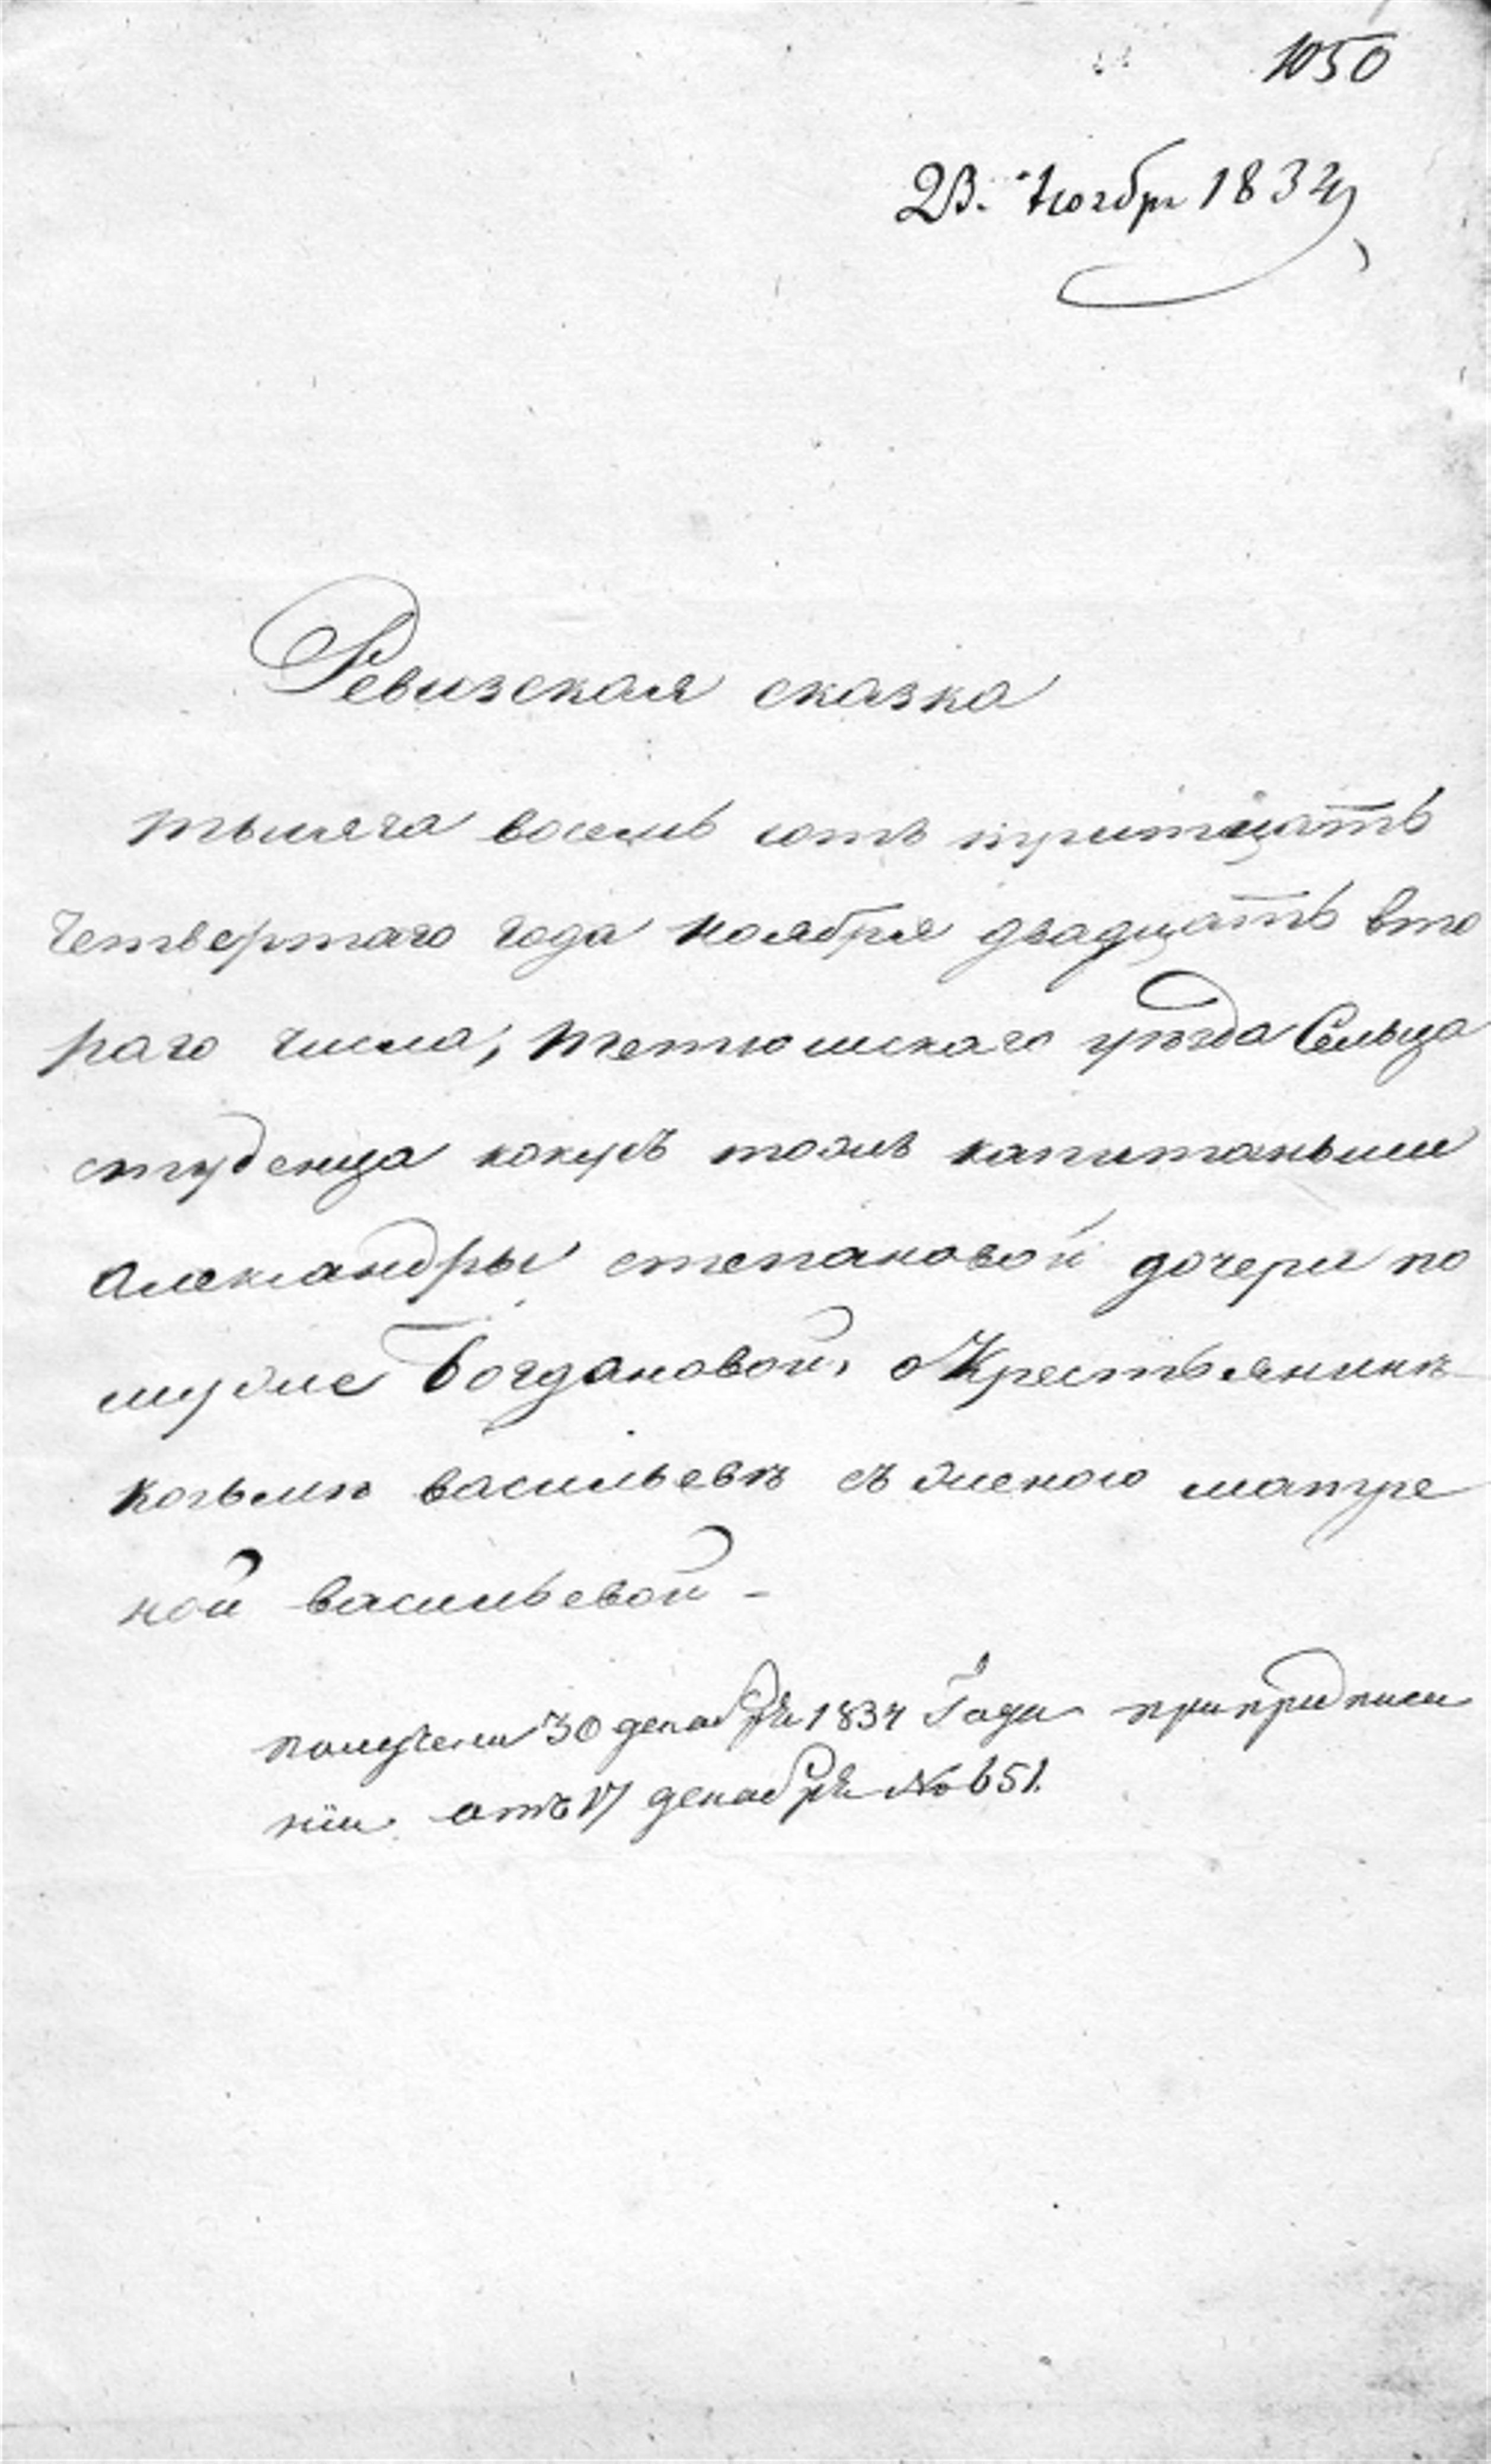 1050
23. Ноября 1834
Ревизская сказка
тысяча восемь сотъ тритцать
четвертаго года ноября двадцать вто
раго числа, тетюшскаго уѣзда Сельца
студенца кокуръ тожъ капитаньши
Александры степановой дочери по
мужѣ Богдановой, о Крестьянинѣ
козьмѣ васильевѣ съ женою матре
ной васильевой -
получена 30 декабря 1834 Года при
отъ 17 декабря № 651.